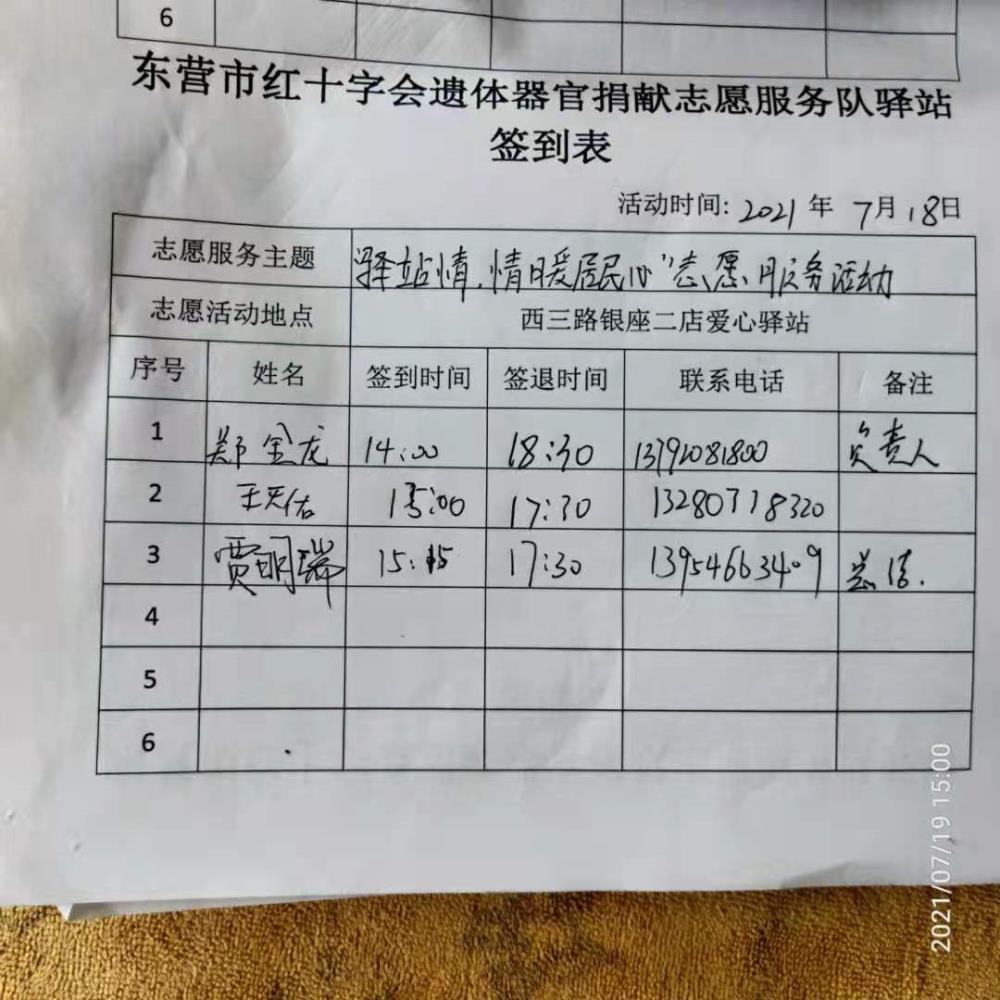 6
东营市红十字会遗体器官捐献志愿服务队驿站
签到表
活动时间: 2021 年 7月 18日
志愿服务主题 驿站情,情暖居民心"志愿服务活动
志愿活动地点 西三路银座二店爱心驿站
序号 姓名 签到时间 签退时间 联系电话 备注
1 郑金龙 14:00 18:30 13792081800 负责人
2 王天佑 15:00 17:30 13280718320
3 贾明瑞 15:15 17:30 13954663409
4
5
6
2021/07/19 15:00